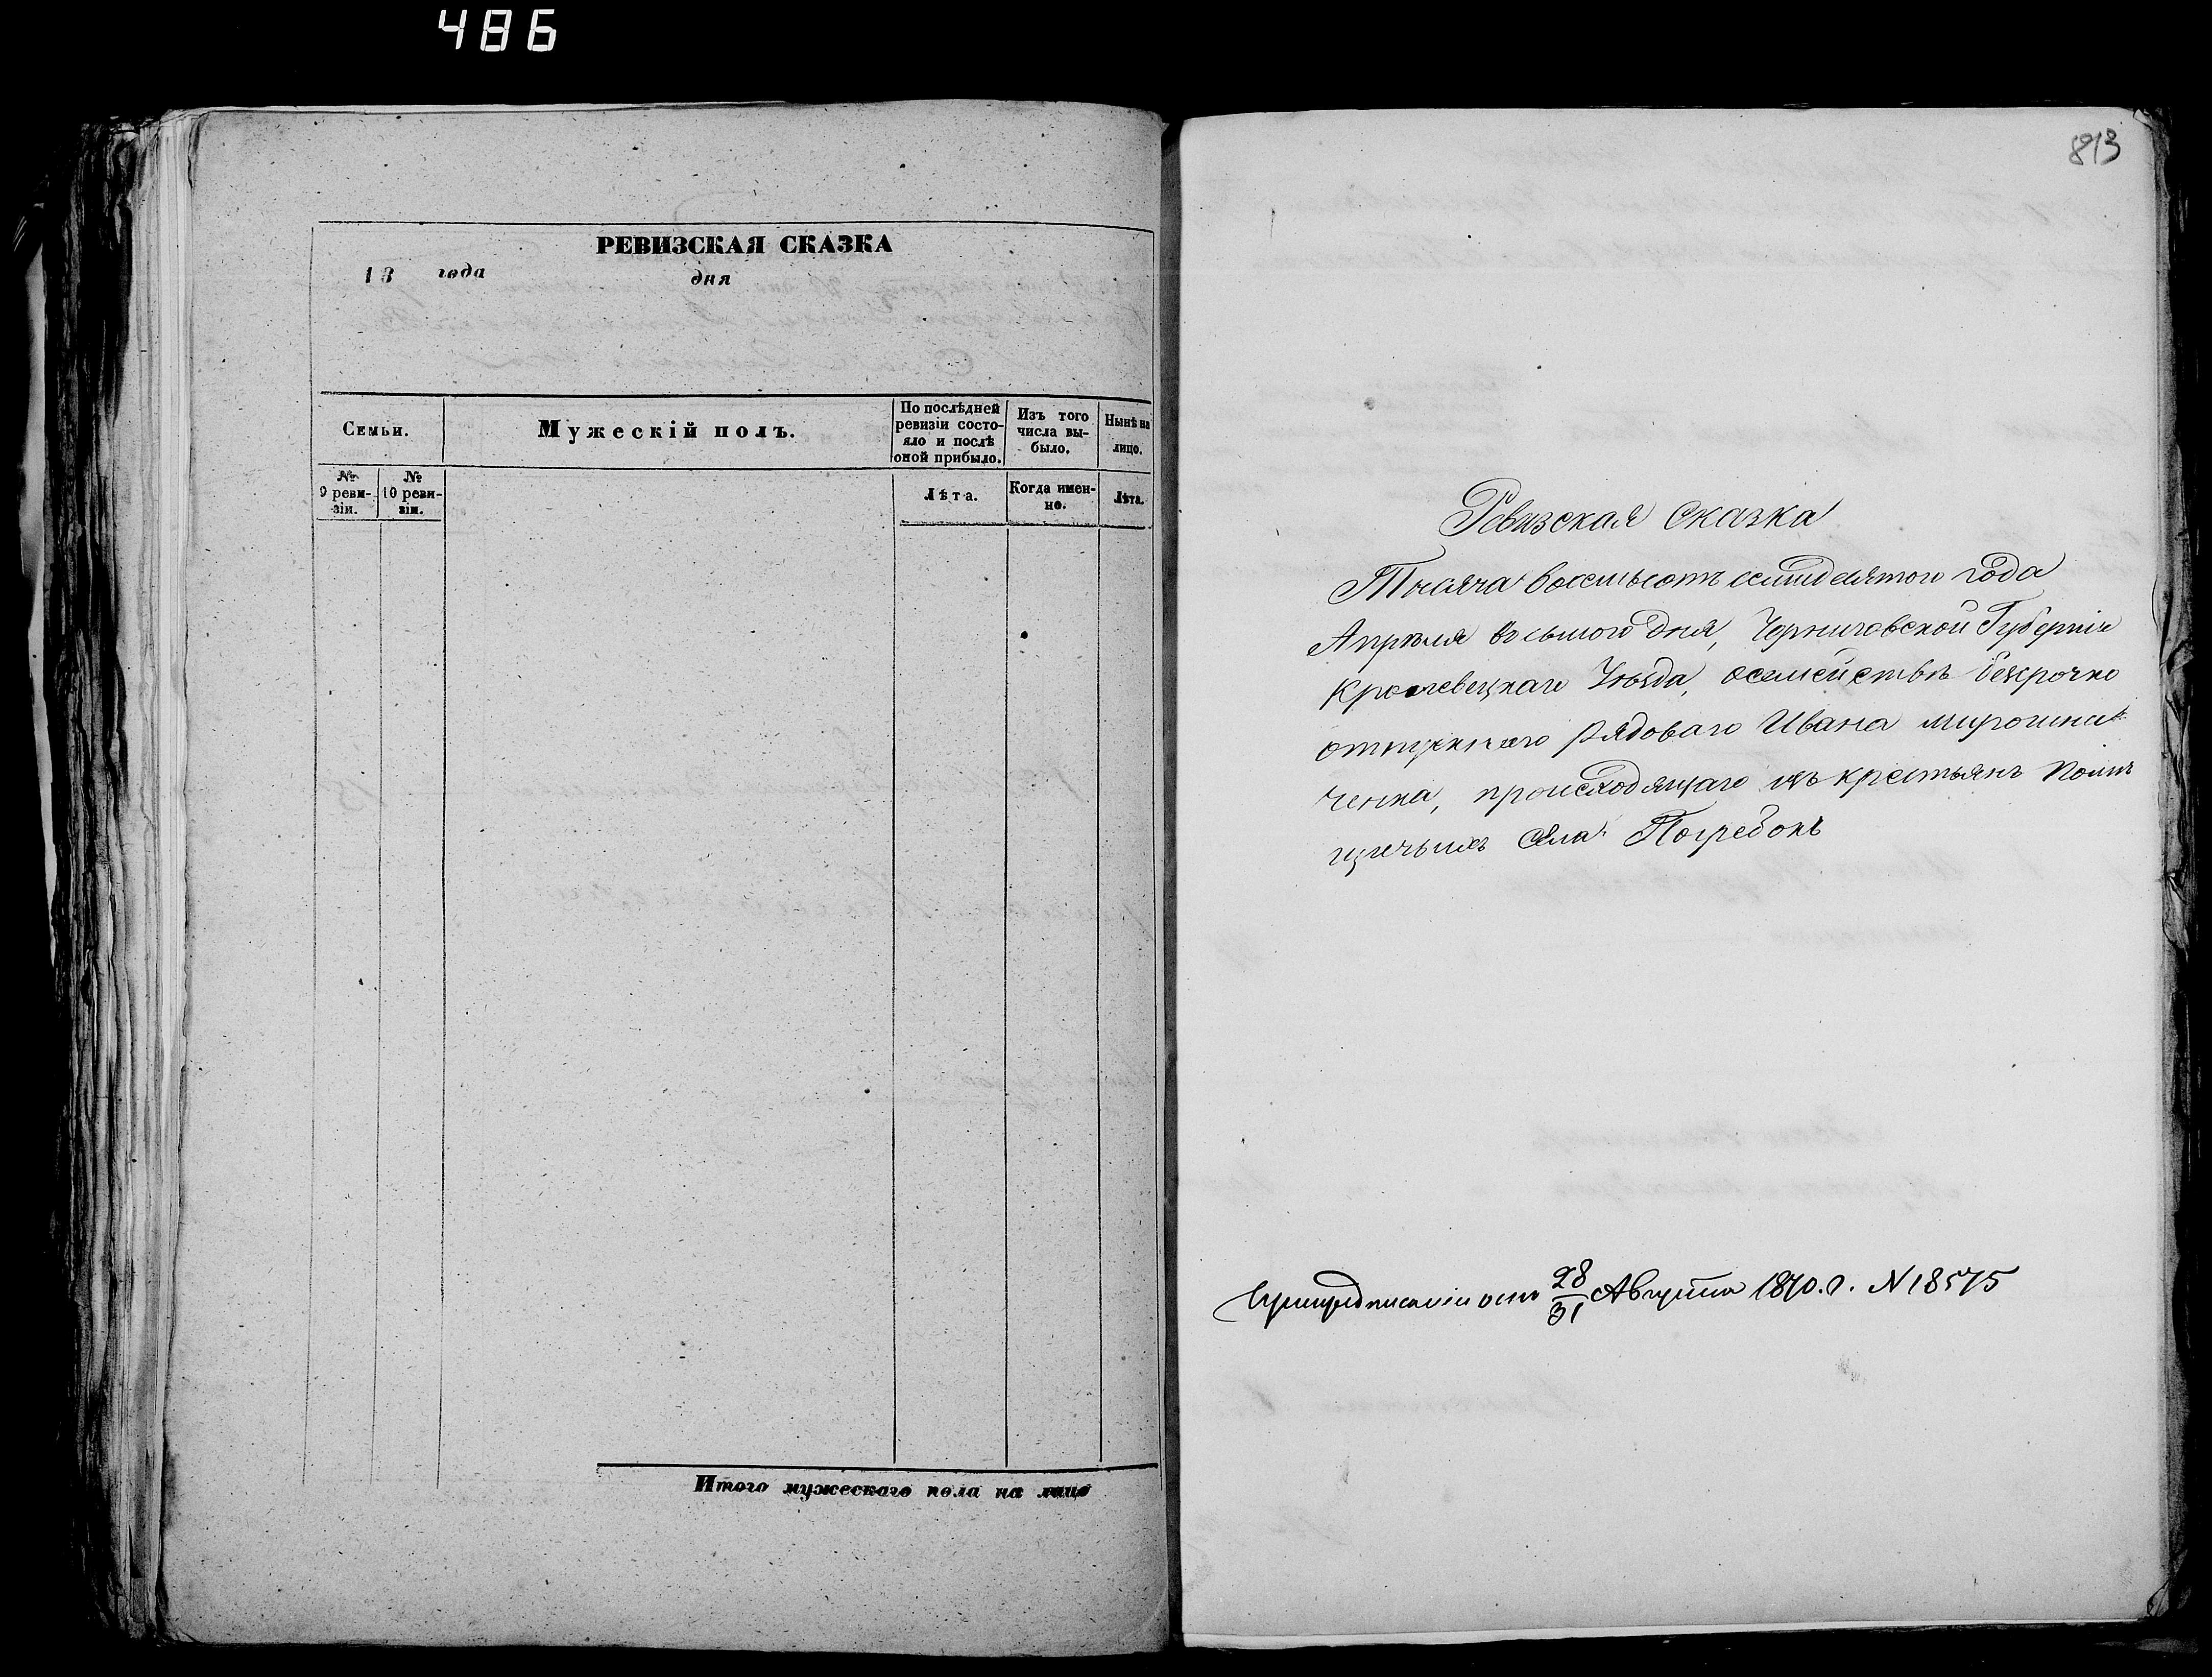 486
РЕВИЗСКАЯ СКАЗКА
18 года дня
Семьи.
Мужескій полъ.
По послѣдней ревизіи состо-
яло и послѣ
оной прибыло.
Изъ того
числа вы-
было.
Нынѣ на
лицо.
№
9 реви-
зіи.
№
10 реви-
зіи.
Лѣта.
Когда имен-
но.
Лѣта.
Итого мужескаго пола на лицо
813
Ревизская сказка
Тысяча восемьсотъ семидесятого года
Апрѣля восьмого дня, Черниговской Губерніи
Кролевецкаго Уѣзда, о семействѣ безсрочно
отпускнаго рядоваго Ивана мирошни-
ченка, происходящаго изъ крестьянъ помѣ
щичьихъ села Погребокъ
28
31 Августа 1870. г. N 18575